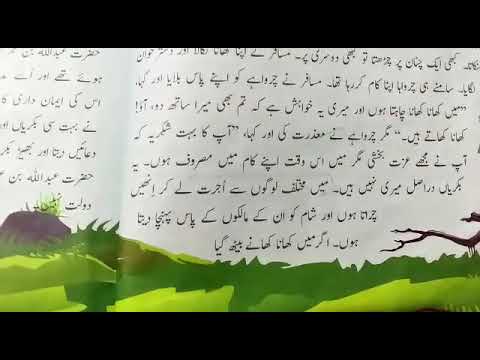 کبھی ایک چٹان پر چڑھتا تو کبھی دوسری پر۔ مسافر نے اپنا کھانا نکالا اور دسترخوان
لگایا۔ سامنے ہی چرواہا اپنا کام کر رہا تھا۔ مسافر نے چرواہے کو اپنے پاس بلایا اور کہا،
”میں کھانا کھانا چاہتا ہوں اور میری یہ خواہش ہے کہ تم بھی میرا ساتھ دو، آؤ!
کھانا کھاتے ہیں۔“ مگر چرواہے نے معذرت کی اور کہا، ”آپ کا بہت شکریہ کہ
آپ نے مجھے عزت بخشی مگر میں اس وقت اپنے کام میں مصروف ہوں۔ یہ
بکریاں دراصل میری نہیں ہیں۔ میں مختلف لوگوں سے اُجرت لے کر اِنھیں
چراتا ہوں اور شام کو ان کے مالکوں کے پاس پہنچا دیتا
ہوں۔ اگر میں کھانا کھانے بیٹھ گیا
حضرت عبداللہ بن
ہوئے تھے اور اُسے
اس کی ایمان داری کا
نے بہت سی بکریاں
دعائیں دیتا اور بھیڑ
حضرت عبداللہ بن
دولت